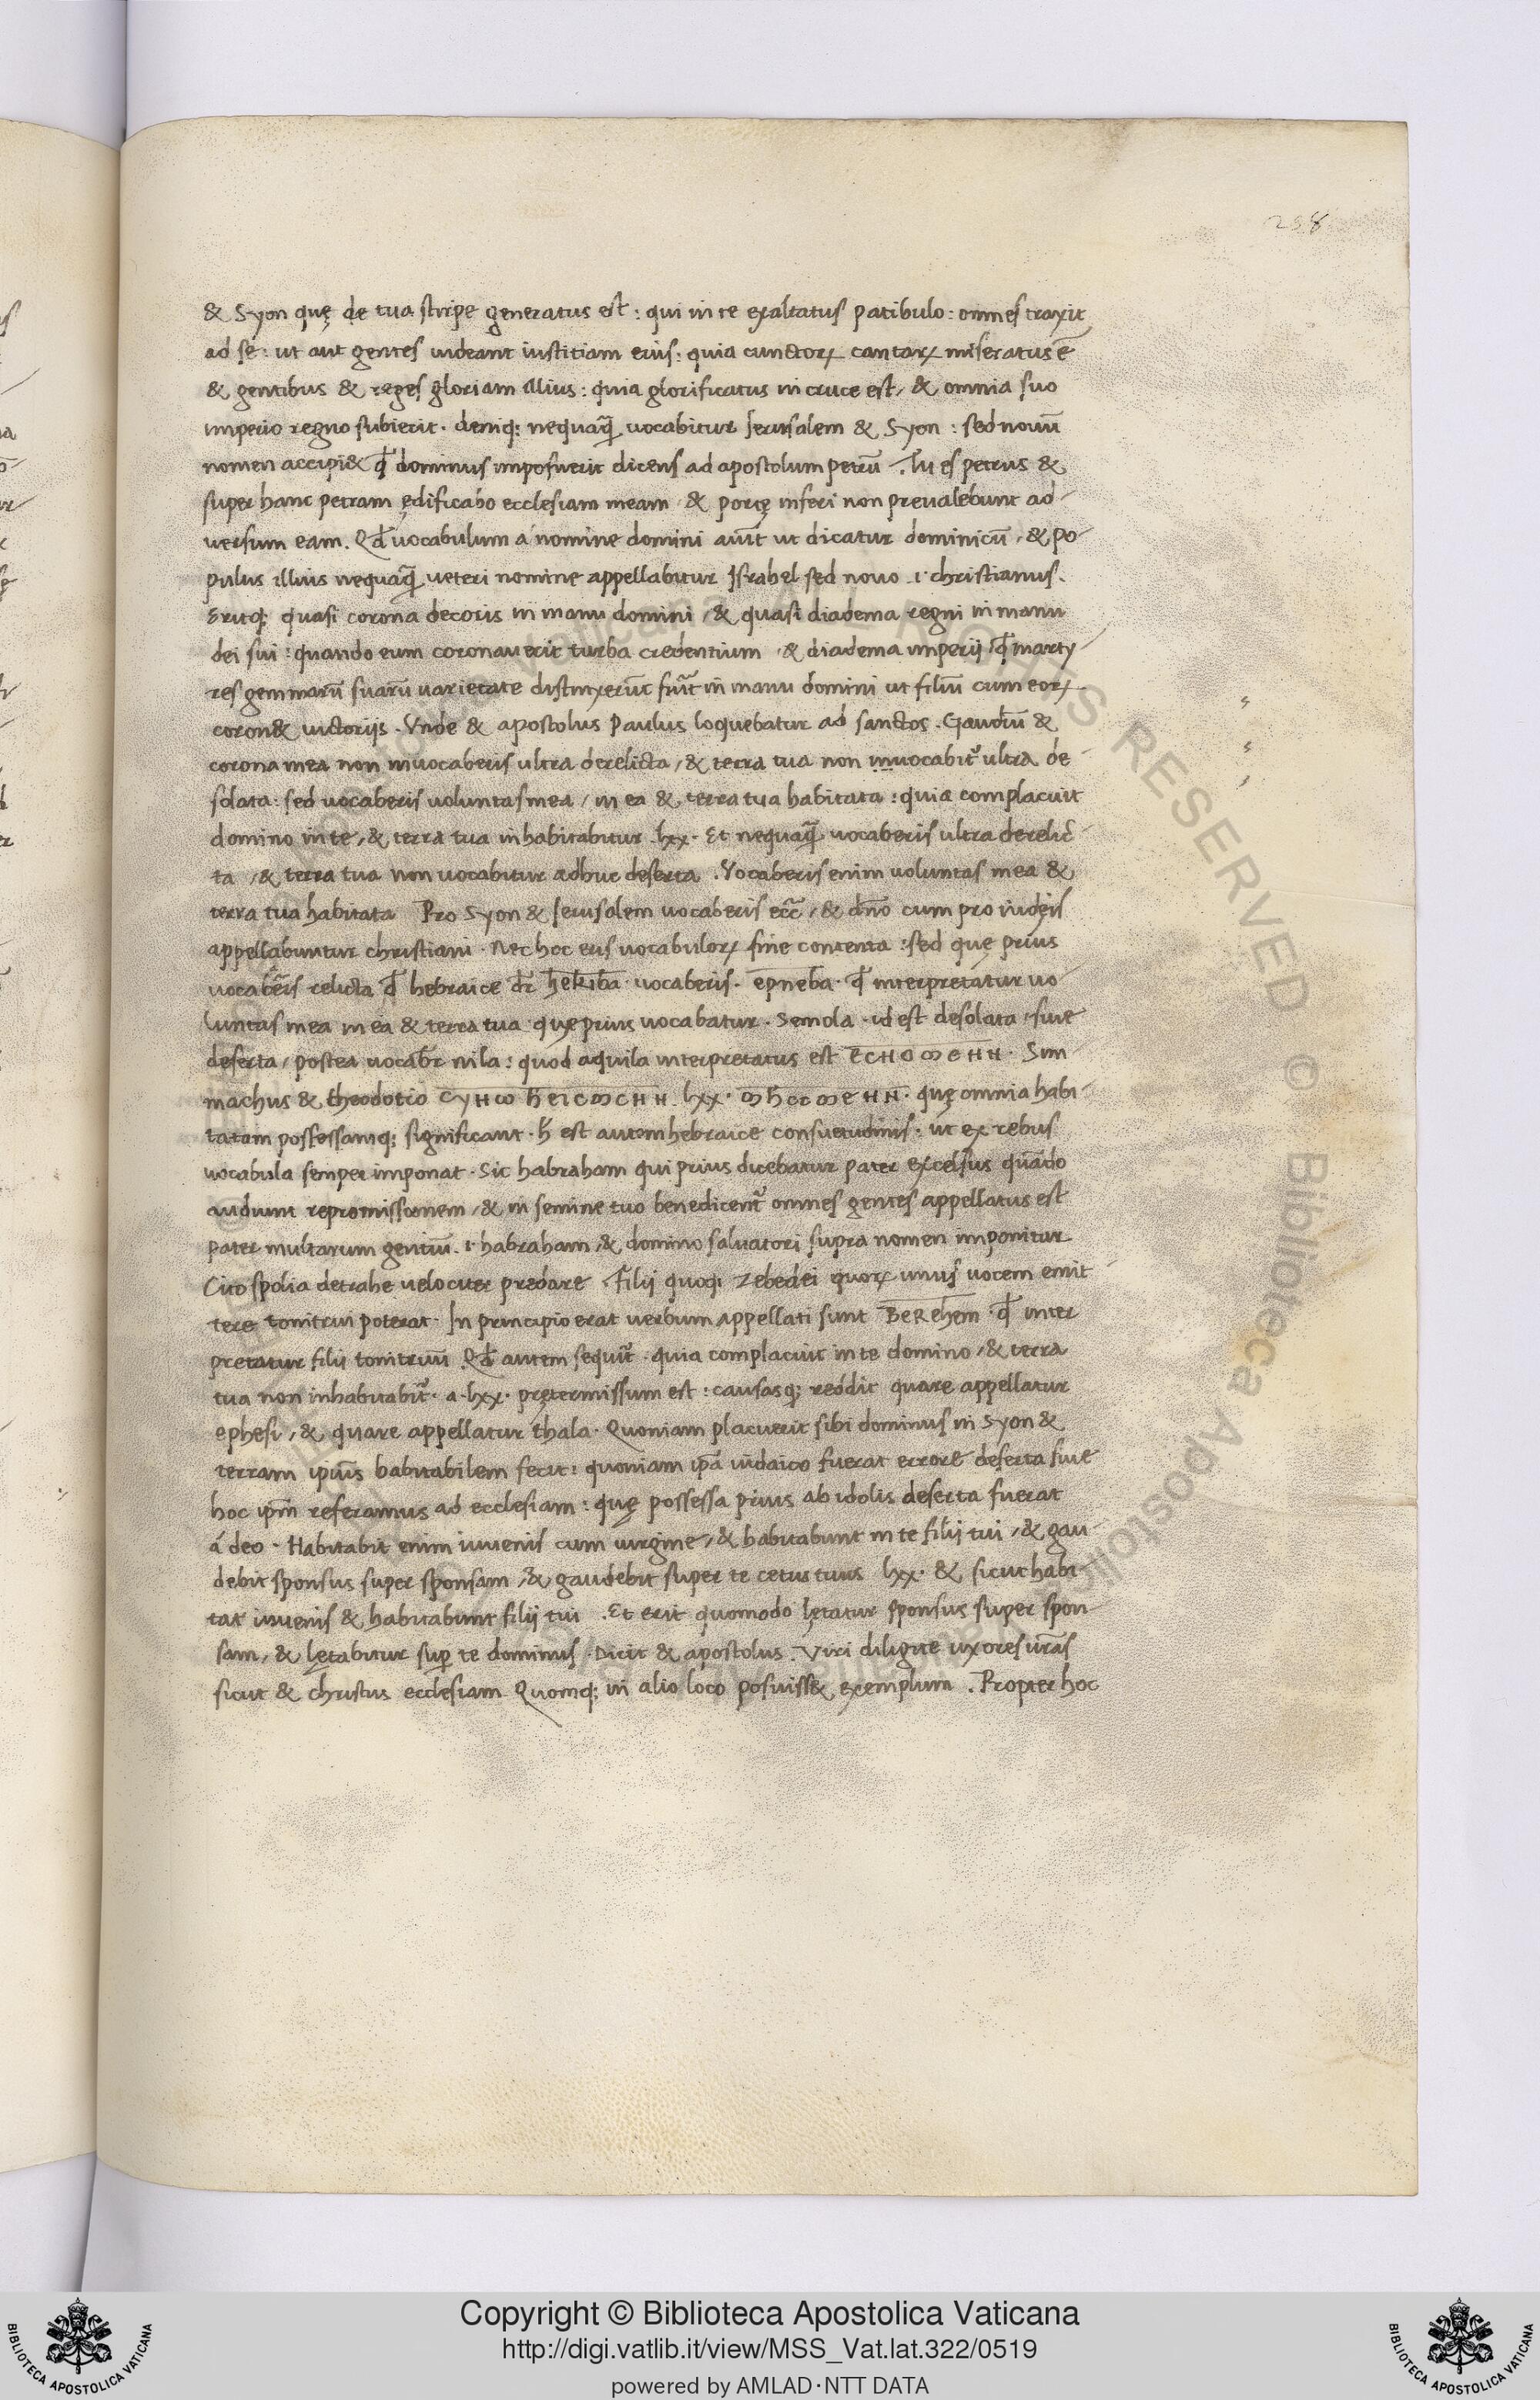 258
& Syon quę de tua stirpe generatus est : qui in te exaltatus patibulo : omnes traxit
ad se : ut aut gentes uideant iustitiam eius : quia cunctoꝝ cantaꝝ miseratus ē
& gentibus & reges gloriam illius : quia glorificatus in cruce est, & omnia suo
imperio regno subierit . deniq; nequaq̄ uocabitur Jerusalem & Syon : sed nouū
nomen accipi& qď dominus imposuerit dicens ad apostolum petrū . Tu es petrus &
super hanc petram ędificabo ecclesiam meam & portę inferi non preualebunt ad-
uersum eam . Qď uocabulum á nomine domini auīt ut dicatur dominicū , & po-
pulus illius nequaq̄ ueteri nomine appellabitur Israhel sed nouo .i. christianus .
Eritq; quasi corona decoris in manu domini , & quasi diadema regni in manu
dei sui : quando eum coronauerit turba credentium , & diadema imperij qď marty-
res gemmarū suarū uarietate distinxerūt fuīt in manu domini ut filiū cum eoꝝ
coron& uictorijs . Vnde & apostolus Paulus loquebatur ad sanctos . Gaudiū &
corona mea non inuocaberis ultra derelicta , & terra tua non inuocabit̃ ultra de-
solata : sed uocaberis uoluntas mea , in ea & terra tua habitata : quia complacuit
domino in te , & terra tua inhabitabitur . lxx . Et nequaq̄ uocaberis ultra derelic-
ta , & terra tua non uocabitur adhuc deserta . Vocaberis enim uoluntas mea &
terra tua habitata Pro Syon & Jerusalem uocaberis ecc̄ , & dn̄o cum pro iudęis
appellabuntur christiani . Nec hoc eris uocabuloꝝ fine contenta : sed quę prius
uocab̄eris relicta qď hebraice dr̄ hekiba uocaberis . epneba . qď interpretatur uo-
luntas mea in ea & terra tua quę prius uocabatur . Semola . id est desolata , siue
deserta , postea uocabr̄ nila : quod aquila interpretatus est
machus & theodotio lxx . quę omnia habi-
tatam possessamq; significant . h̄ est autem hebraice consuetudinis . ut ex rebus
uocabula semper imponat . Sic habraham qui prius dicebatur pater excelsus quādo
audiunt repromissionem , & in semine tuo benedicent̃ omnes gentes appellatus est
pater multarum gentiū . i. habraham , & domino saluatori supra nomen imponitur
Cito spolia detrahe uelociter predare . Filij quoq; zebedei quoꝝ unus uocem emit-
tere tonitrui poterat . In principio erat uerbum appellati sunt Berehem . qď inter
pretatur filii tonitruū . Qď autem sequit̃ . quia complacuit in te domino , & terra
tua non inhabitabit̃ . a . lxx . pretermissum est : causasq; reddit quare appellatur
ephesi , & quare appellatur thala . Quoniam placuerit sibi dominus in Syon &
terram ipius habitabilem fecit : quoniam ip̄a iudaico fuerat errore deserta siue
hoc ip̄m referamus ad ecclesiam : quę possessa prius ab idolis deserta fuerat
á deo . Habitabit enim iuuenis cum uirgine , & habitabunt in te filij tui , & gau-
debit sponsus super sponsam , & gaudebit super te cetus tuus lxx . & sicut habi-
tat iuuenis & habitabunt filij tui . Et erit quomodo lętatur sponsus super spon-
sam , & lętabitur sup̱ te dominus . Dicit & apostolus . Viri diligite uxores ur̄as
sicut & christus ecclesiam Quomq; in alio loco posuiss& exemplum . Propter hoc
Copyright © Biblioteca Apostolica Vaticana
http://digi.vatlib.it/view/MSS_Vat.lat.322/0519
powered by AMLAD·NTT DATA
BIBLIOTECA APOSTOLICA VATICANA
BIBLIOTECA APOSTOLICA VATICANA